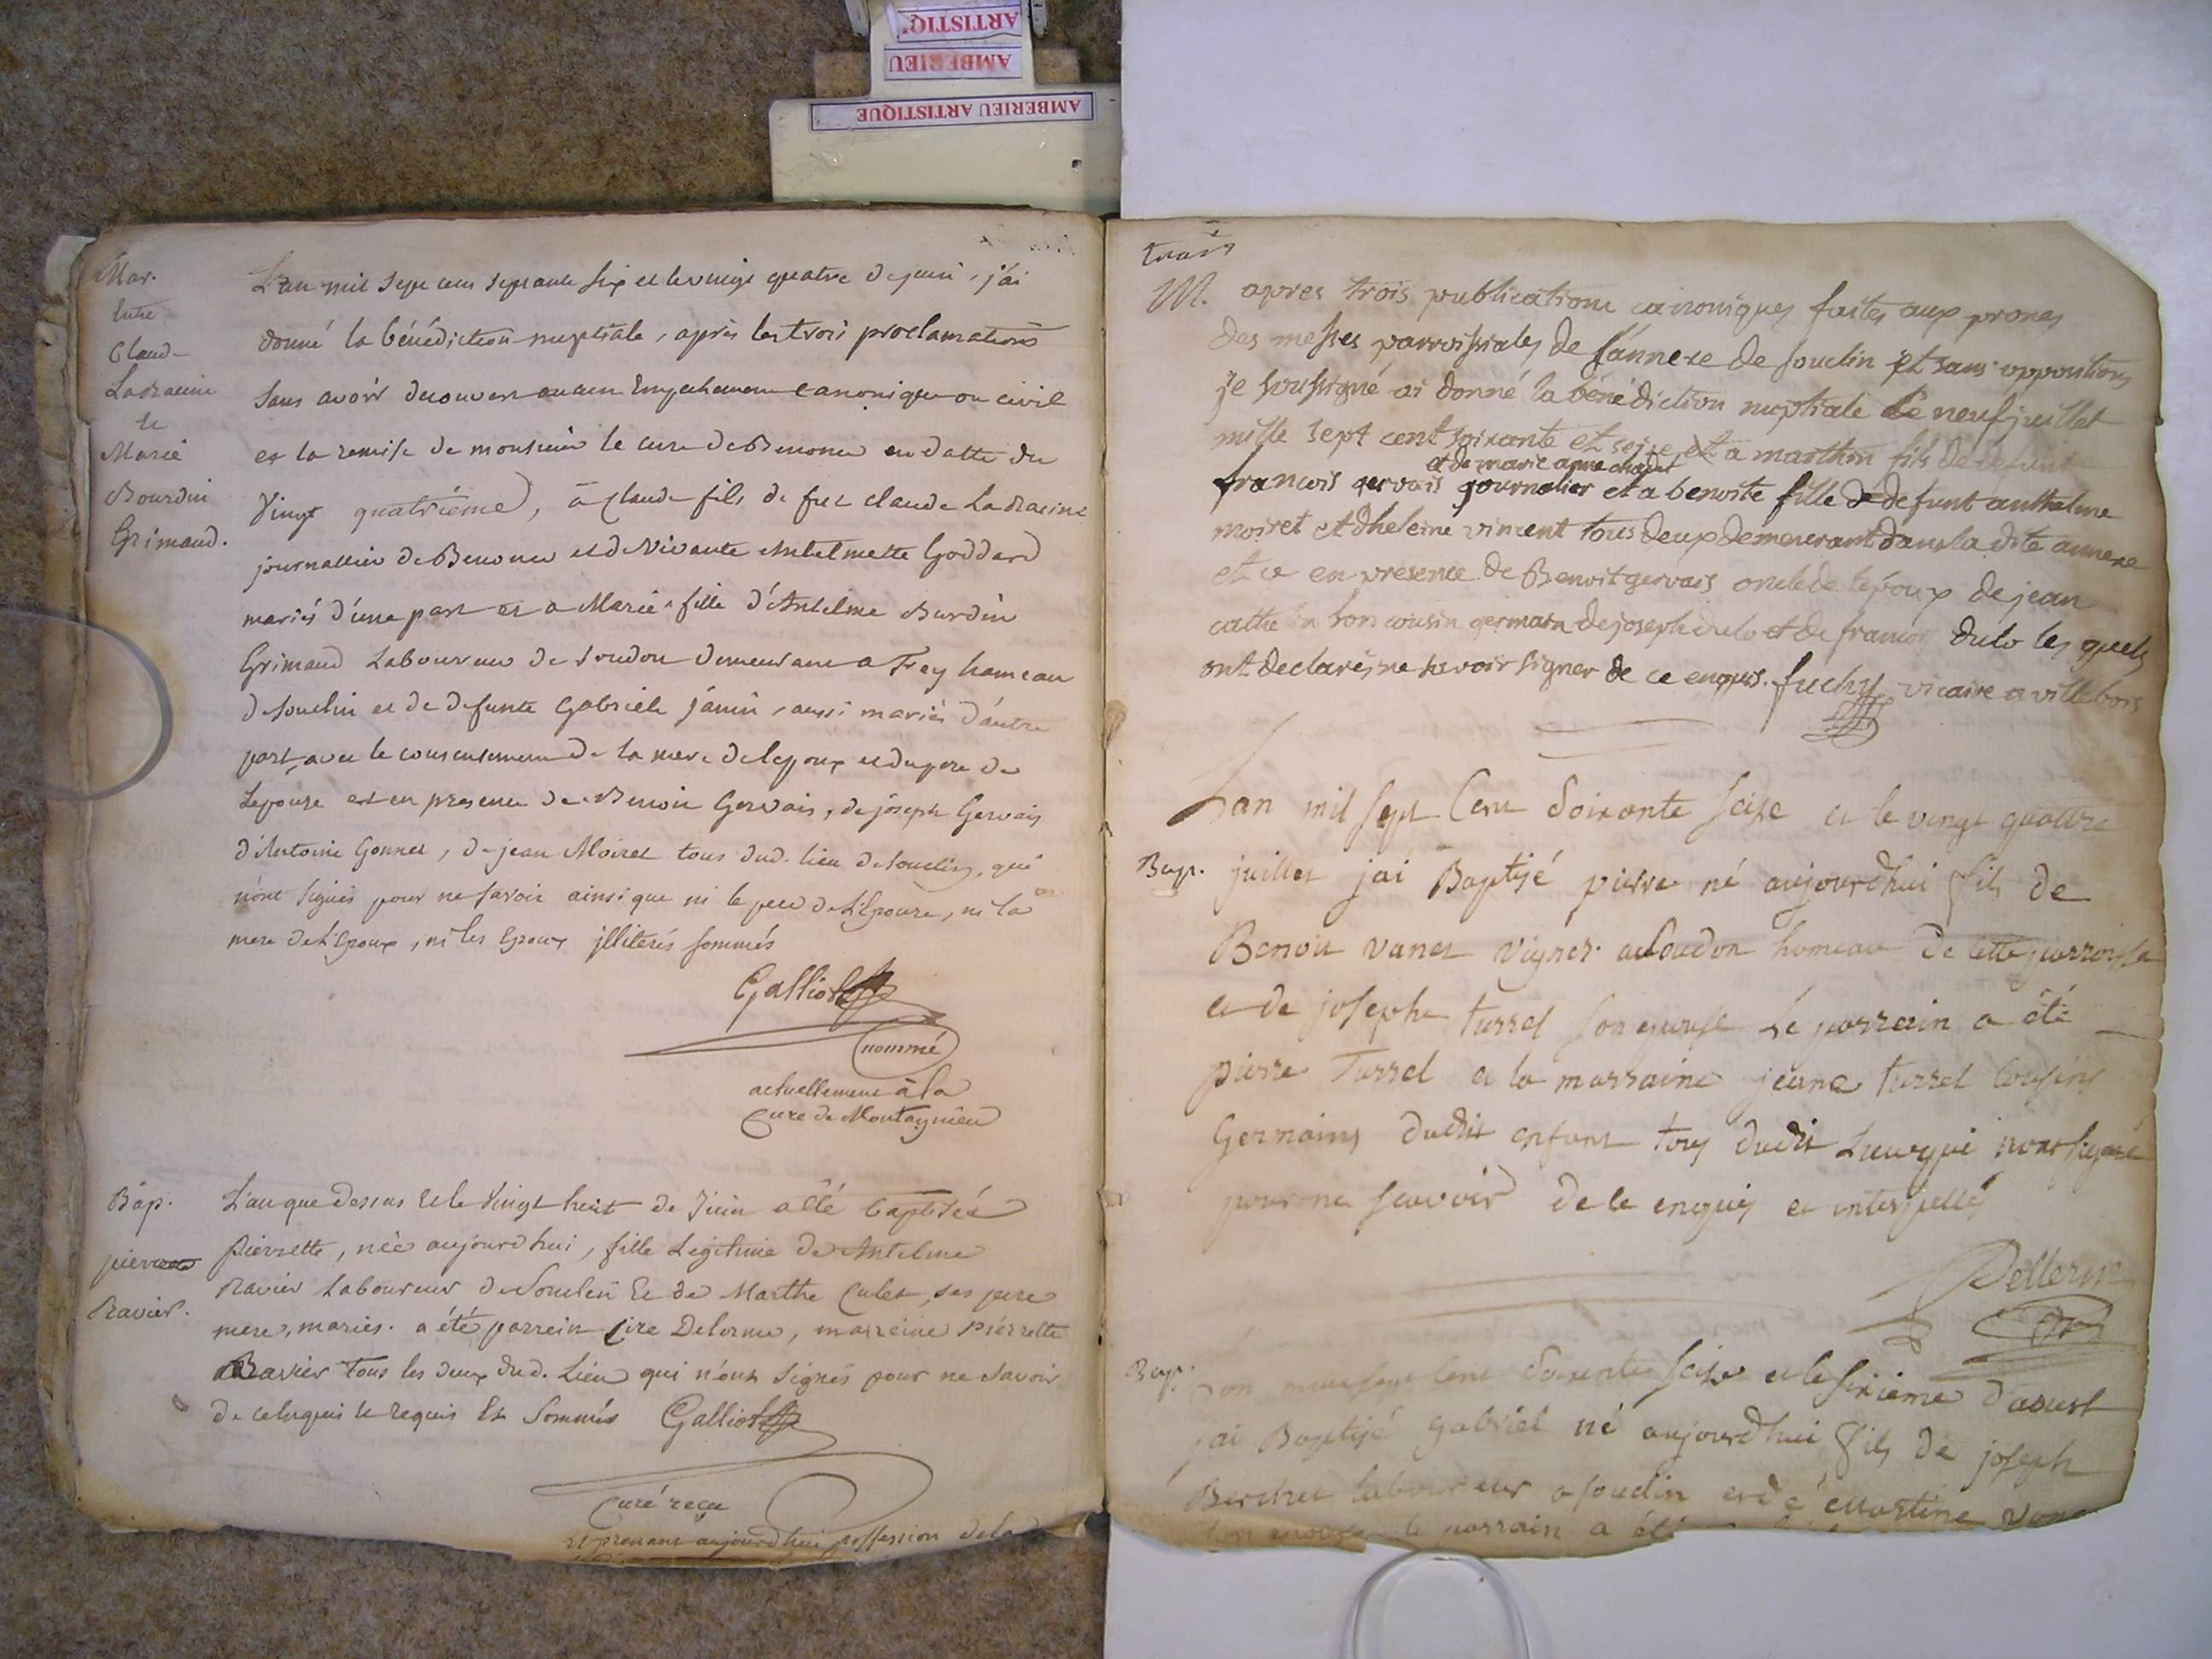 AMBERIEU ARTISTIQUE
AMBERIEU
ARTISTIQ
Mar.
Entre
Claude
Ladracine
et
Marie
Bourdin
Grimaud.
L'an mil sept cent septante six et le vingt quatre de juin, j'ai
donné la bénédiction nuptiale, après les trois proclamations
sans avoir decouvert aucun Empechement canonique ou civil
et la remise de monsieur le curé de Benonce en datte du
Vingt quatrième, à Claude fils de feu claude Ladracine
journallier de Benonce et de Vivante Antelmette Goddard
mariés d'une part et a Marie fille d'Antelme Burdin
Grimaud Laboureur de Soudon demeurant a Fay hameau
de Souclin et de defunte Gabriele jánin, aussi mariés d'autre
part, avec le consentement de la mere de lepoux et du pere de
Lepouse et en presence de Benoit Gervais, de joseph Gervais
d'Antoine Gonnet, de jean Moiret tous dud. lieu de Souclin, qui
n'ont signés pour ne savoir ainsi que ni le pere de L'Epouse, ni la
mere de L'Epoux, ni les Epoux jlliterés sommés
Galliot
nommé
actuellement à la
Cure de Montagnieu
Bap.
pierrette
Ravier.
L'an que dessus et le Vingt huit de Juin a été baptisée
Pierrette, née aujourd'hui, fille Legitime de Antelme
Ravier Laboureur de Souclin Et de Marthe Culet, ses pere
mere, mariés. a été parrein Delorme, marreine Pierrette
Ravier tous les deux dud. Lieu qui n'ont signés pour ne savoir
de ce enquis et requis Et Sommés Galliot
Curé reçu
Et prenant aujourd'hui possession de la
trois
M. apres trois publications canoniques faites aux prones
des messes parroissiales de l'annexe de souclin et sans oppositions
je soussigné ai donné la bénédiction nuptiale le neuf juillet
mille sept cent soixante et seize et a marthin fils de defunt
et de marie anne chadet
francois gervais journalier et a benoite fille de defunt anthelme
moiret et dheleine vincent tous deux demeurant dans la dite annexe
et ce en presence de Benoit gervais oncle de lepoux de jean
cathelin son cousin germain de joseph dulo et de francois dulo les quels
ont declarés ne savoir signer de ce enquis. fuchy vicaire a villebois
Bap.
Lan mil sept Cent Soixante seize et le vingt quattre
juillet jai Baptisé pierre né aujourdhui fils de
Benoit vanet vigner. a Soudon hameau de cette parroisse
et de josephe turrel son epouse Le parrain a été
pierre Turrel et la marraine jeane turrel cousins
Germains dudit enfant tous dudit Lieu qui nont signé
pour ne scavoir de ce enquis et interpellés
Pellerin
Bap.
Lan mil sept cent Soixante seize et le sixieme d'aoust
jai Baptisé gabriel né aujourdhui fils de joseph
Berchet laboureur a souclin et de Martine
son epouse le parrain a été